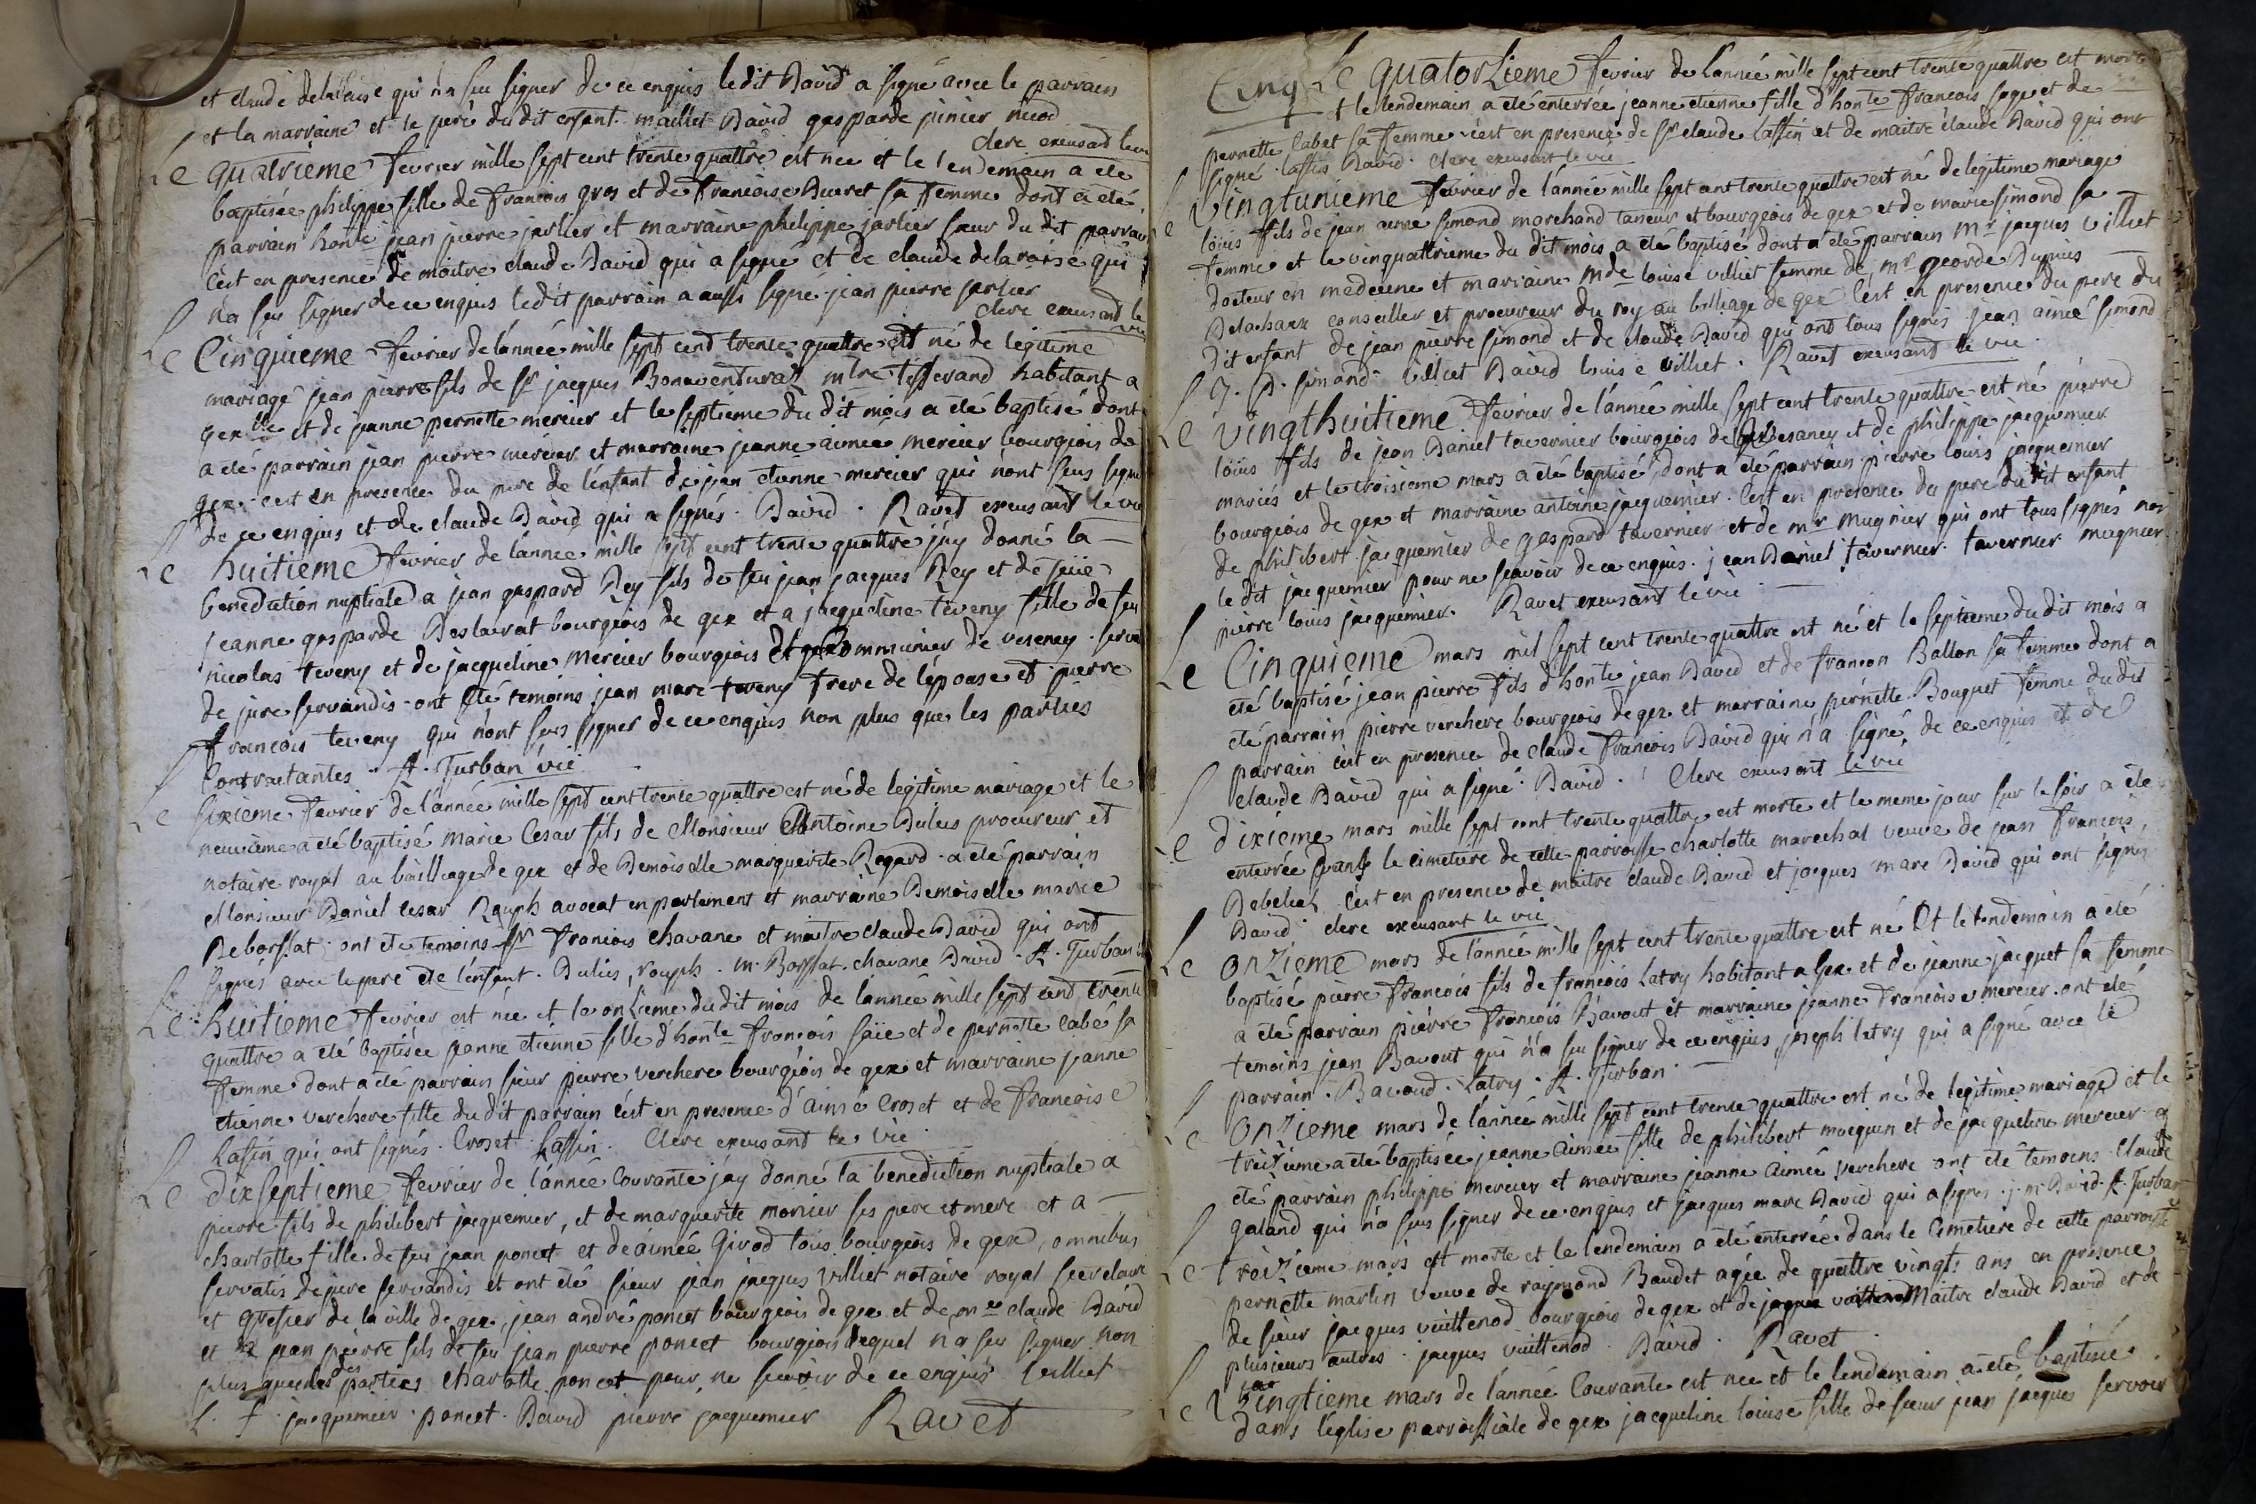 et claude delaraise qui n'a sceu signer de ce enquis ledit David a signé avec le parrain
et la marraine et le pere du dit enfant. maillet David gasparde pinier nicod
clerc excusand le vic
Le quatrieme fevrier mille sept cent trente quattre est nee et le lendemain a été
baptisée philippe fille de francois gros et de francoise Buevet sa femme dont a été
parrain honle jean pierre jarlier et marraine philippe jarlier sœur du dit parrain
c'est en presence de maitre claude David qui a signé et de claude delaraise qui
n'a seu signer de ce enquis ledit parrain a aussi signé jean pierre jarlier
clerc excusand le vic
Le Cinquieme fevrier de l'année mille sept cend trente quattre est né de legitime
mariage jean pierre fils de sr jacques Bonaventura mtre tisserand habitant a
gex lle et de jeanne pernette mercier et le septieme du dit mois a été baptisé dont
a été parrain jean pierre mercier et marraine jeanne aimée mercier bourgeois de
gex. c'est en presence du pere de l'enfant de jean etienne mercier qui n'ont seus signer
de ce enquis et de claude David qui a signés. David. Ravet excusant le vic
Le huitieme fevrier de l'annee mille sept cent trente quattre j'ay donné la
benediction nuptiale a jean gaspard Rey fils de feu jean jacques Rey et de feüe
jeanne gasparde Deslavrat bourgeois de gex et a jacqueline teveny fille de feu
nicolas teveny et de jacqueline mercier bourgeois et communier de vesency. serva
de jure servandis. ont été temoins jean marc teveny frere de l'epouse et pierre
francois teveny qui n'ont seus signer de ce enquis non plus que les parties
Contractantes. A. Turban vic
Le sixieme fevrier de l'année mille sept cent trente quattre est né de legitime mariage et le
neuvieme a été baptisé marie cesar fils de Monsieur Antoine Duleis procureur et
notaire royal au bailliage de gex et de Demoiselle marguerite Regard. a été parrain
Monsieur Daniel cesar Rouph avocat en parlement et marraine Demoiselle marie
Deborssat ont été temoins sr francois chavane et maitre claude David qui ont
signés avec le pere de l'enfant. Duleis, rouph. m. Borssat. chavane David. A. Turban
Le huitieme fevrier est née et le onzieme du dit mois de l'année mille sept cend trente
quattre a été baptisée jeanne etienne fille d'honle francois saïe et de pernette labé sa
femme dont a été parrain sieur pierre verchere bourgeois de gex et marraine jeanne
etienne verchere fille du dit parrain c'est en presence d'aimé Croset et de francoise
Lassin qui ont signés. Croset Lassin. Clerc excusant le vic
Le dixseptieme fevrier de l'année Courante j'ay donné la benediction nuptiale a
pierre fils de philibert jacquemier, et de marguerite monier ses pere et mere et a
charlotte fille de feu jean poncet et de aimée Girod tous bourgeois de gex, omnibus
servatis de jure servandis et ont été sieur jean jacques Villiet notaire royal secretaire
et grefier de la ville de gex, jean andré poncet bourgeois de gex et de me claude David
et de jean pierre fils de feu jean pierre poncet bourgeois lequel n'a seu signer non
plus que des parties charlotte poncet pour ne scavoir de ce enquis villiet
jacquemier. poncet. David pierre jacquemier Ravet
Cinq Le quatorzieme fevrier de l'année mille sept cent trente quattre est morte
et le lendemain a été enterrée jeanne etienne fille d'honle francois saye et de
pernette labet sa femme c'est en presence de sr claude lassin et de maitre claude David qui ont
signé. lassin David. Clerc excusant le vic
Le vingtunieme fevrier de l'année mille sept cent trente quattre est né de legitime mariage
loüis fils de jean aimé simond marchand taneur et bourgeois de gex et de marie simond sa
femme et le vinquattrieme du dit mois a été baptisé dont a été parrain mr jacques villiet
docteur en medecine et marraine mde louise villiet femme de mr george Dupuis
Delachaux conseiller et procureur du roy au balliage de gex c'est en presence du pere du
dit enfant de jean pierre simond et de claude David qui ont tous signés jean aimé simond
J. P. simond villiet David louise villiet. Ravet excusant le vic.
Le vingthuitieme fevrier de l'année mille sept cent trente quattre est né pierre
loüis fils de jean Daniel tavernier bourgeois de vesancy et de philippe jacquemier
mariés et le troisieme mars a été baptisé dont a été parrain pierre louis jacquemier
bourgeois de gex et marraine antoine jacquemier. c'est en presence du pere du dit enfant
de philibert jacquemier de gaspard tavernier et de mr mugnier qui ont tous signés non
le dit jacquemier pour ne scavoir de ce enquis. jean Daniel tavernier. tavernier mugnier
pierre louis jacquemier. Ravet excusant le vic
Le Cinquieme mars mil sept cent trente quattre est né et le septieme du dit mois a
été baptisé jean pierre fils d'honle jean David et de francon Ballon sa femme dont a
été parrain pierre verchere bourgeois de gex et marraine pernette Bouquet femme du dit
parrain c'est en presence de claude francois David qui n'a signé de ce enquis et de
claude David qui a signé. David. Clerc excusant le vic
Le dixieme mars mille sept cent trente quattre est morte et le meme jour sur le soir a été
enterrée dans le cimetiere de cette parroisse charlotte marechal veuve de jean francois
Debelieh c'est en presence de maitre claude David et jacques marc David qui ont signés
David. clerc excusant le vic
Le onzieme mars de l'année mille sept cent trente quattre est né Et le lendemain a été
baptisé pierre francois fils de francois Latry habitant a Gex et de jeanne jacquet sa femme
a été parrain pierre francois Bavout et marraine jeanne francoise mercier. ont été
temoins jean Bavout qui n'a su signer de ce enquis, joseph latry qui a signé avec le
parrain. Bavoud. Latry. A. Turban.
Le Onzieme mars de l'année mille sept cent trente quattre est né de legitime mariage et le
treizieme a été baptisée jeanne Aimée fille de philibert moequin et de jacqueline mercier a
été parrain philippe mercier et marraine jeanne aimée verchere ont été temoins Claude
Galand qui n'a seu signer de ce enquis et jacques marc David qui a signes. j. m. David. A. Turban
Le treizieme mars est morte et le lendemain a été enterrée dans le cimetiere de cette parroisse
pernette martin veuve de raymond Baudet agée de quattre vingts ans en presence
de sieur jacques vuittenod bourgeois de gex et de maitre claude David et de
plusieurs autres. jacques vuittenod. David. Ravet.
Le vingtieme mars de l'année Courante est née et le lendemain a été baptisée
dans l'eglise parroissiale de gex jacqueline loüise fille de sieur jean jacques servoir